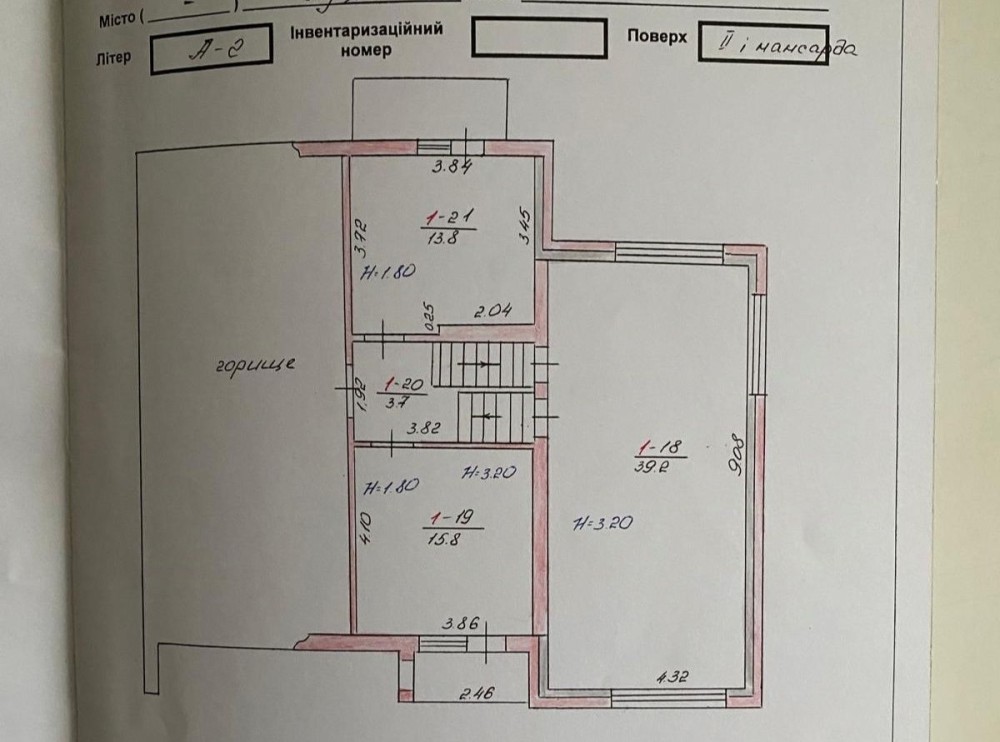 Місто (
Літер
А-2
Інвентаризаційний
номер
Поверх
ІІ і мансарда
3.84
1-21
13.8
3.72
3.45
H=1.80
0.25
2.04
горище
1-20
3.7
1.92
3.82
1-18
39.2
9.08
H=3.20
H=1.80
H=3.20
1-19
15.8
4.10
3.86
4.32
2.46